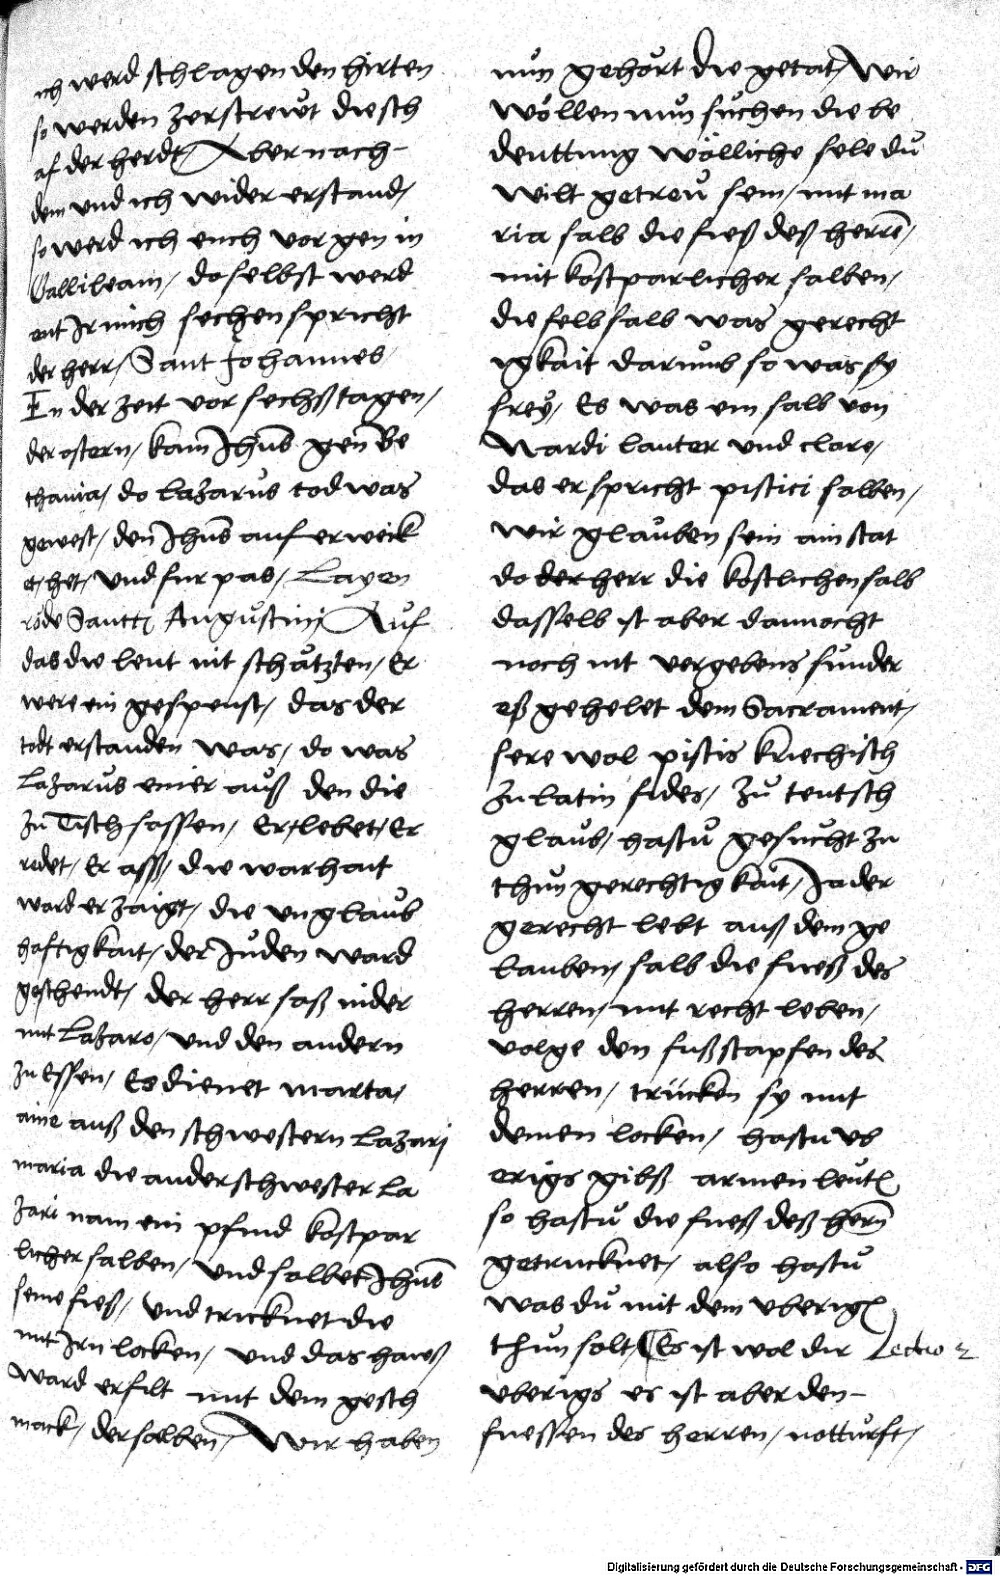 ich werd schlagen den hirten
so werden zerstrewt die sch
af der herdt / Aber nach-
dem und ich wider erstand /
so werd ich euch vor gen in
Gallileam / do selbst werd
ent Ir mich sechen spricht
der herr / Sant Johannes
In der zeit vor sechß tagen /
der ostern / kam Jhus gen Be
thania / do Lazarus tod was
gewest / den Jhus auf erweik
et het / und fur pas / Layen
rede Sancti Augustini / Auf
das die leut nit schätzten / Er
were ein gespenst / das der
todt erstanden was / do was
Lazarus einer auß den die
zu Tisch sassen / Er lebet / Er
redet / Er asß / die warhait
ward erzaigt / die unglaub
haftigkait / der Juden ward
geschendt / der herr saß nider
mit Lazaro / und den andern
zu Essen / Es dienet marta /
aine auß den schwestern Lazari
maria die ander schwester La
zari nam ein pfund kostpar
licher salben / und salbet Jhus
seine fieß / und tricknet die
mit Irn locken / und das hawß
ward erfilt mit dem gesch
mack / der salben / Wir haben
nun gehört die getat / Wir
wöllen nun suchen die be
deuttung wölliche sele du
wilt getreu sein / mit ma
ria salb die fieß deß herren /
mit kostparlicher salben /
die selb salb was gerecht
igkait darumb so was sy
frey / Es was ein salb von
Nardi lauter und clare /
das er spricht pistici salben /
wir glauben sein ain stat
do der herr die kostlichen salb
dasselb ist aber dannocht
noch nit vergebens sunder
eß gehelet dem Sacrament /
sere wol pistis kriechisch
zu latin fides / zu teutsch
glaub / hastu gesucht zu
thun gerechtigkait / Ja der
gerecht lebt auß dem ge
lauben / salb die fueß des
herren / mit recht leben /
volge den fußstapfen des
herren / trücken sy mit
deinen locken / hastu ub
erigs gibß armen leuten
so hastu die fueß deß hern
getrucknet / also hastu
was du mit dem uberigen
thun solt / Es ist wol dir Lectio 2
uberigs es ist aber den-
fuessen des herren / notturft /
Digitalisierung gefördert durch die Deutsche Forschungsgemeinschaft - DFG